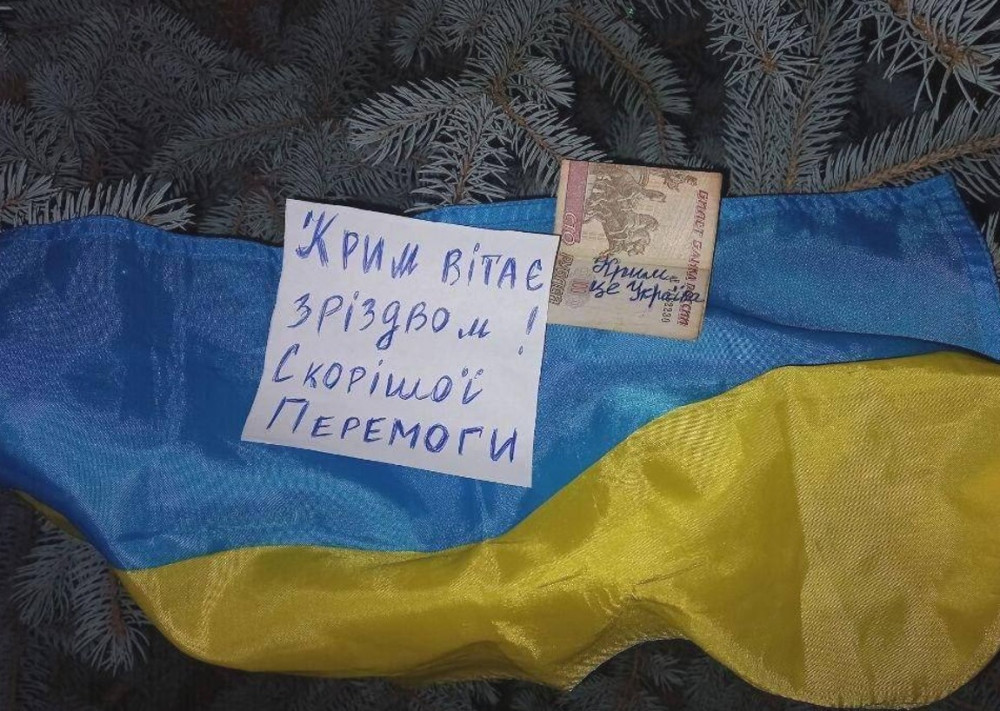 Крим вітає
зріздвом!
Скорішої
Перемоги
БИЛЕТ БАНКА РОССИИ
СТО РУБЛЕЙ
Крим
це Україна